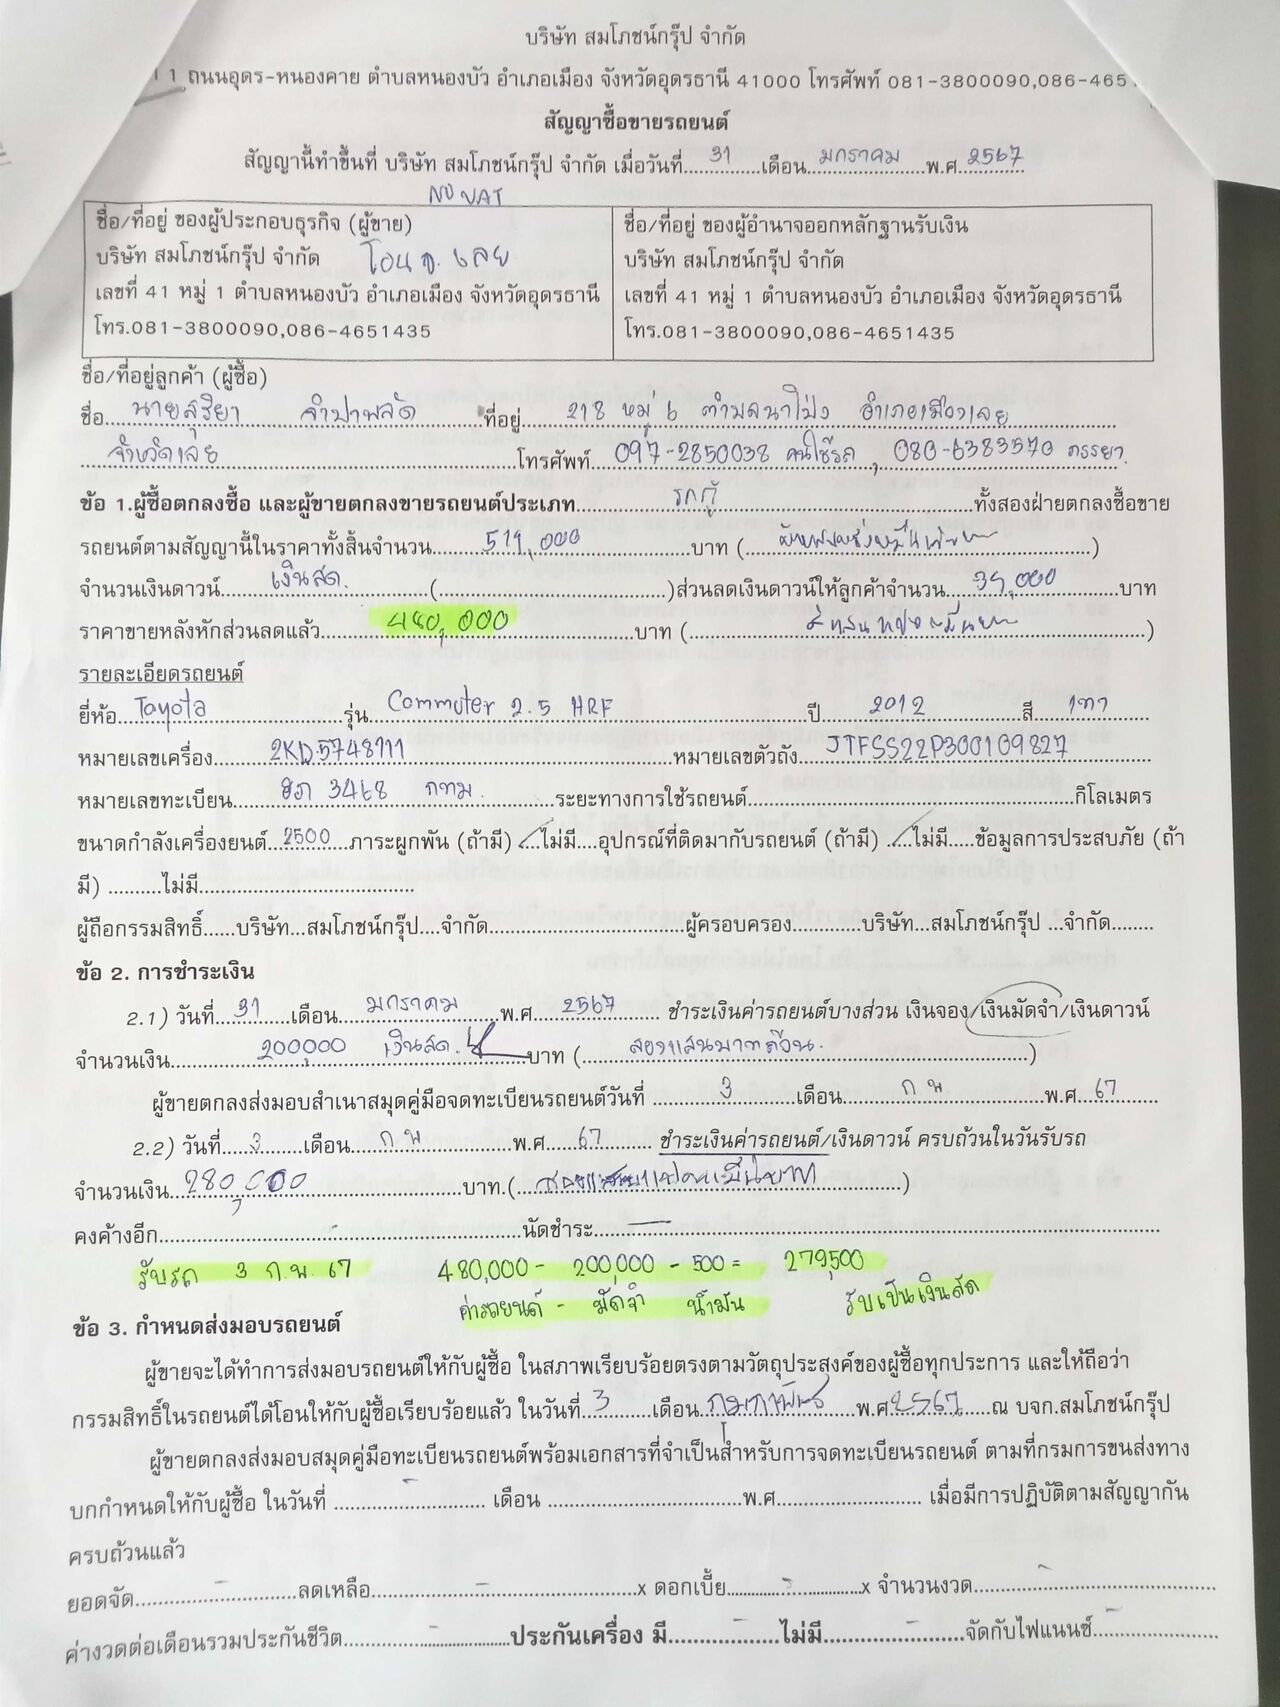 บริษัท สมโภชน์กรุ๊ป จำกัด
1 ถนนอุดร-หนองคาย ตำบลหนองบัว อำเภอเมือง จังหวัดอุดรธานี 41000 โทรศัพท์ 081-3800090,086-465
สัญญาซื้อขายรถยนต์
สัญญานี้ทำขึ้นที่ บริษัท สมโภชน์กรุ๊ป จำกัด เมื่อวันที่ 31 เดือน มกราคม พ.ศ 2567
NO VAT
ชื่อ/ที่อยู่ ของผู้ประกอบธุรกิจ (ผู้ขาย)
บริษัท สมโภชน์กรุ๊ป จำกัด โอน จ. เลย
เลขที่ 41 หมู่ 1 ตำบลหนองบัว อำเภอเมือง จังหวัดอุดรธานี
โทร.081-3800090,086-4651435
ชื่อ/ที่อยู่ ของผู้อำนาจออกหลักฐานรับเงิน
บริษัท สมโภชน์กรุ๊ป จำกัด
เลขที่ 41 หมู่ 1 ตำบลหนองบัว อำเภอเมือง จังหวัดอุดรธานี
โทร.081-3800090,086-4651435
ชื่อ/ที่อยู่ลูกค้า (ผู้ซื้อ)
ชื่อ นายสุริยา จำปาพลัด ที่อยู่ 218 หมู่ 6 ตำบลนาโป่ง อำเภอเมืองเลย
จังหวัดเลย โทรศัพท์ 097-2850038 คนใช้รถ , 080-6383570 ภรรยา
ข้อ 1.ผู้ซื้อตกลงซื้อ และผู้ขายตกลงขายรถยนต์ประเภท รถตู้ ทั้งสองฝ่ายตกลงซื้อขาย
รถยนต์ตามสัญญานี้ในราคาทั้งสิ้นจำนวน 519,000 บาท ( )
จำนวนเงินดาวน์ เงินสด ( )ส่วนลดเงินดาวน์ให้ลูกค้าจำนวน 39,000 บาท
ราคาขายหลังหักส่วนลดแล้ว 480,000 บาท ( )
รายละเอียดรถยนต์
ยี่ห้อ Toyota รุ่น Commuter 2.5 HRF ปี 2012 สี เทา
หมายเลขเครื่อง 2KD5748111 หมายเลขตัวถัง JTFSS22P300109827
หมายเลขทะเบียน ฮภ 3468 กทม. ระยะทางการใช้รถยนต์ กิโลเมตร
ขนาดกำลังเครื่องยนต์ 2500 ภาระผูกพัน (ถ้ามี) ไม่มี อุปกรณ์ที่ติดมากับรถยนต์ (ถ้ามี) ไม่มี ข้อมูลการประสบภัย (ถ้า
มี) ไม่มี
ผู้ถือกรรมสิทธิ์ บริษัท สมโภชน์กรุ๊ป จำกัด ผู้ครอบครอง บริษัท สมโภชน์กรุ๊ป จำกัด
ข้อ 2. การชำระเงิน
2.1) วันที่ 31 เดือน มกราคม พ.ศ 2567 ชำระเงินค่ารถยนต์บางส่วน เงินจอง/เงินมัดจำ/เงินดาวน์
จำนวนเงิน 200,000 เงินสด บาท ( สองแสนบาทถ้วน )
ผู้ขายตกลงส่งมอบสำเนาสมุดคู่มือจดทะเบียนรถยนต์วันที่ 3 เดือน ก.พ พ.ศ 67
2.2) วันที่ 3 เดือน ก.พ พ.ศ 67 ชำระเงินค่ารถยนต์/เงินดาวน์ ครบถ้วนในวันรับรถ
จำนวนเงิน 280,000 บาท.( สองแสนแปดหมื่นบาท )
คงค้างอีก นัดชำระ
รับรถ 3 ก.พ. 67 480,000 - 200,000 - 500 = 279,500
ค่ารถยนต์ - มัดจำ น้ำมัน รับเป็นเงินสด
ข้อ 3. กำหนดส่งมอบรถยนต์
ผู้ขายจะได้ทำการส่งมอบรถยนต์ให้กับผู้ซื้อ ในสภาพเรียบร้อยตรงตามวัตถุประสงค์ของผู้ซื้อทุกประการ และให้ถือว่า
กรรมสิทธิ์ในรถยนต์ได้โอนให้กับผู้ซื้อเรียบร้อยแล้ว ในวันที่ 3 เดือน กุมภาพันธ์ พ.ศ 2567 ณ บจก.สมโภชน์กรุ๊ป
ผู้ขายตกลงส่งมอบสมุดคู่มือทะเบียนรถยนต์พร้อมเอกสารที่จำเป็นสำหรับการจดทะเบียนรถยนต์ ตามที่กรมการขนส่งทาง
บกกำหนดให้กับผู้ซื้อ ในวันที่ เดือน พ.ศ เมื่อมีการปฏิบัติตามสัญญากัน
ครบถ้วนแล้ว
ยอดจัด ลดเหลือ x ดอกเบี้ย x จำนวนงวด
ค่างวดต่อเดือนรวมประกันชีวิต ประกันเครื่อง มี ไม่มี จัดกับไฟแนนซ์